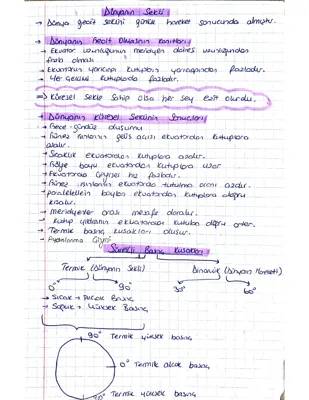 Dünyanın Şekli
→ Dünya geoit şeklini günlük hareket sonucunda almıştır.
→ Dünyanın Geoit Olmasının Kanıtları
→ Ekvator uzunluğunun meridyen dairesi uzunluğundan
fazla olması
→ Ekvatorun yarıçapı kutupların yarıçapından fazladır.
→ Yer çekimi kutuplarda fazladır.
⇒ Küresel Şekle Sahip olsa her şey eşit olurdu.
→ Dünyanın Küresel Şeklinin Sonuçları
→ Gece-gündüz oluşumu
→ Güneş ışınlarının geliş açısı ekvatordan kutuplara
azalır.
→ Sıcaklık ekvatordan kutuplara azalır.
→ Gölge boyu ekvatordan kutuplara uzar
→ Ekvatorda Çizgisel hız fazladır.
→ Güneş ışınlarının ekvatorda tutulma oranı azdır.
→ paralellerin boyları ekvatordan kutuplara doğru
kısalır.
→ Meridyenler arası mesafe daralır.
→ Kutup yıldızının ekvatordan kutuba doğru artar.
→ Termik basınç kuşakları oluşur.
→ Aydınlanma Çizgisi
Sürekli Basınç Kuşakları
Termik (Dünyanın Şekli) Dinamik (Dünyanın Hareketi)
0° 90° 30° 60°
→ Sıcak → Alçak Basınç
→ Soğuk → Yüksek Basınç
90° Termik yüksek basınç
0° Termik alçak basınç
90° Termik yüksek basınç